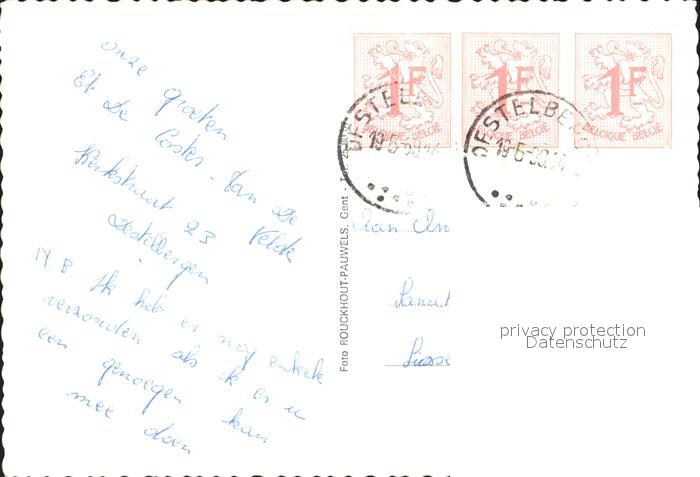 Onze groeten
Et De Coster - Van de Velde
Kerkstraat 23
Destelbergen
N.B. Ik heb er nog enkele
verzonden als ik er u
een genoegen kan
mee doen
1F
BELGIQUE BELGIE
1F
BELGIQUE BELGIE
1F
BELGIQUE BELGIE
DESTEL
19-5-69
DESTELBERGEN
19-5-69
Foto ROUCKHOUT-PAUWELS, Gent
Aan
privacy protection
Datenschutz